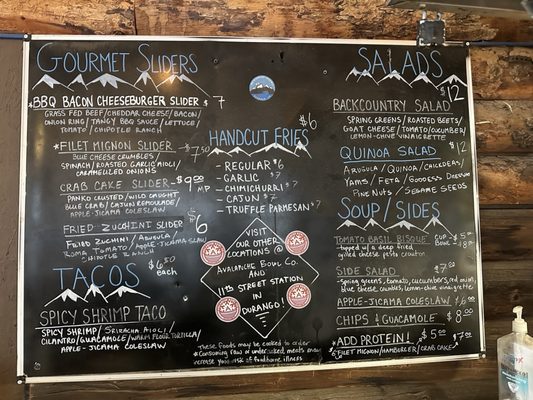 GOURMET SLIDERS
*BBQ BACON CHEESEBURGER SLIDER $7
GRASS FED BEEF/CHEDDAR CHEESE/BACON/
ONION RING/TANGY BBQ SAUCE/LETTUCE/
TOMATO/CHIPOTLE RANCH
*FILET MIGNON SLIDER - $7.50
BLUE CHEESE CRUMBLES/
SPINACH/ROASTED GARLIC AIOLI/
CARAMELIZED ONIONS
CRAB CAKE SLIDER - $9.00 MP
PANKO CRUSTED/WILD CAUGHT
BLUE CRAB/CAJUN REMOULADE/
APPLE-JICAMA COLESLAW
FRIED ZUCCHINI SLIDER $6
FRIED ZUCHINI/ARUGULA/
ROMA TOMATO/APPLE-JICAMA SLAW/
CHIPOTLE RANCH
TACOS $6.50 each
SPICY SHRIMP TACO
SPICY SHRIMP/SRIRACHA AIOLI/
CILANTRO/GUACAMOLE/WARM FLOUR TORTILLA/
APPLE-JICAMA COLESLAW
HANDCUT FRIES $6
- REGULAR $6
- GARLIC $7
- CHIMICHURRI $7
- CAJUN $7
- TRUFFLE PARMESAN $7
VISIT
OUR OTHER
LOCATIONS @
AVALANCHE BOWL CO.
AND
11TH STREET STATION IN
DURANGO!
These foods may be cooked to order
*Consuming raw or undercooked meats may
increase your risk of foodborne illness
SALADS
BACKCOUNTRY SALAD $12
SPRING GREENS/ROASTED BEETS/
GOAT CHEESE/TOMATO/CUCUMBER/
LEMON-CHIVE VINAIGRETTE
QUINOA SALAD $12
ARUGULA/QUINOA/CHICKPEAS/
YAMS/FETA/GODDESS DRESSING
PINE NUTS/SESAME SEEDS
SOUP/SIDES
TOMATO BASIL BISQUE CUP $5 BOWL $8
topped w/a deep fried
grilled cheese pesto crouton
SIDE SALAD $7.00
spring greens, tomato, cucumbers, red onion,
blue cheese crumbles, lemon-chive vinaigrette
APPLE-JICAMA COLESLAW $6.00
CHIPS & GUACAMOLE $8.00
*ADD PROTEIN! $5.00 $7.00
*FILET MIGNON/HAMBURGER/CRAB CAKE